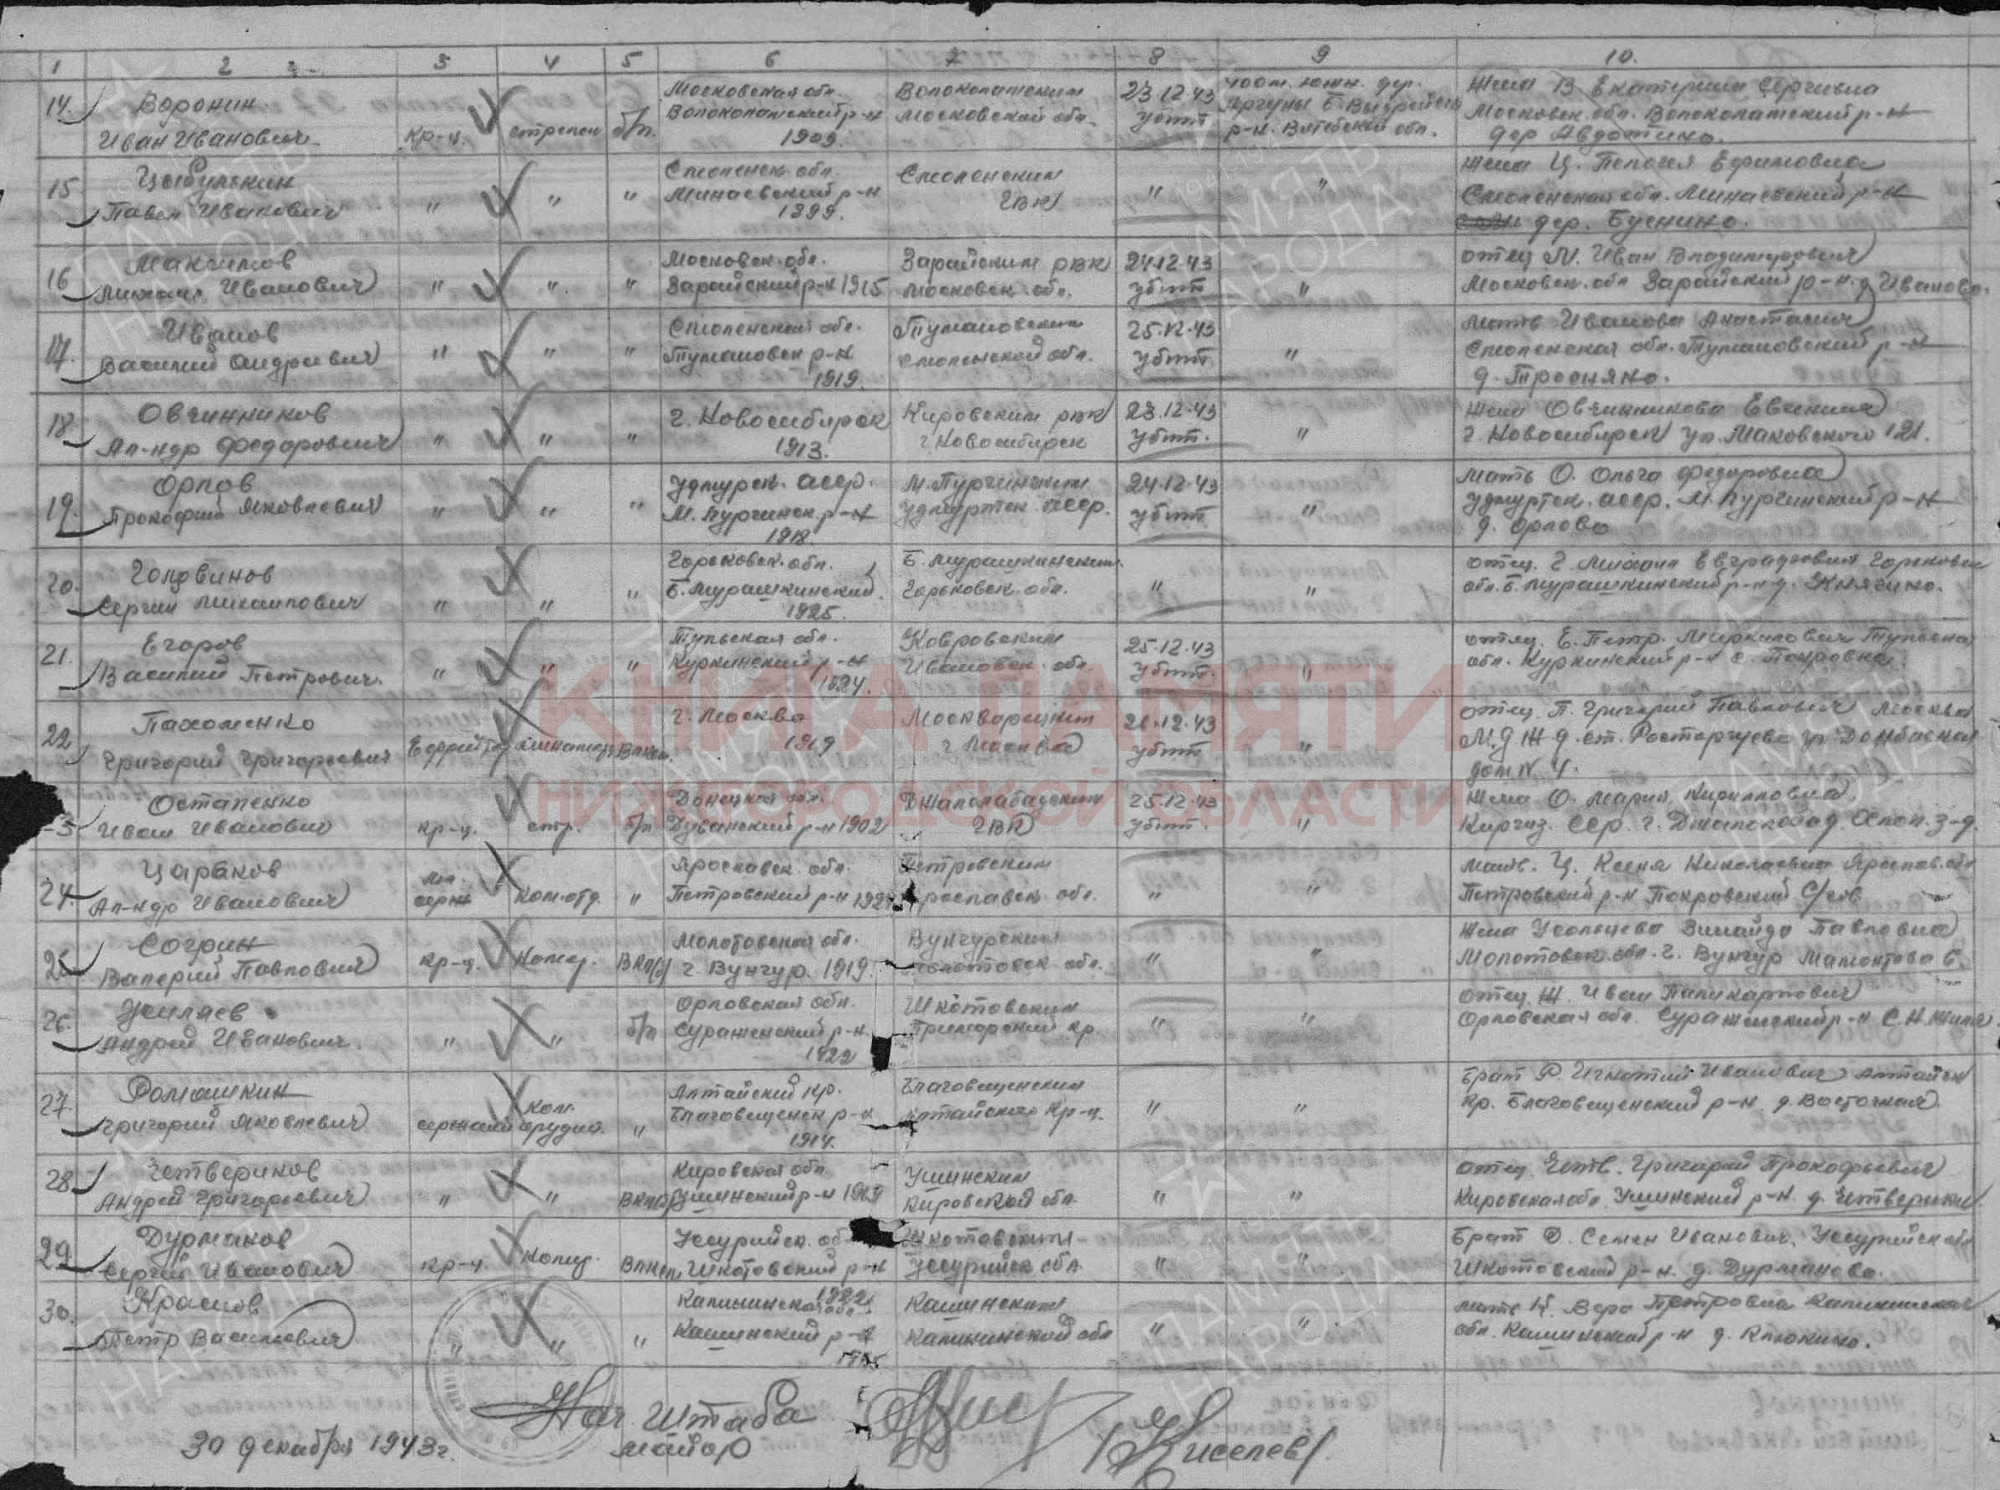 1 2 3 4 5 6 7 8 9 10.
14. Воронин Иван Иванович кр-ц. стрелок б/п. Московская обл. Волоколамский р-н 1909. Волоколамским Московской обл. 23.12.43 убит 400 м. южн. дер. р-н. Витебской обл. Жена В. Екатерина Сергеевна Московск. обл. Волоколамский р-н дер Авдотино.
15 Цыбульский Павел Иванович " " " Смоленск. обл. 1899. Смоленским ГВК " " Жена Ц. Пелогея Ефимовна Смоленская обл. дер. Буснино.
16 Максимов Михаил Иванович " " " Московск. обл. Зарайский р-н 1915 Зарайским РВК Московск. обл. 24.12.43 убит " отец М. Иван Владимирович Московск. обл Зарайский р-н. д Иваново.
17. Иванов Василий Андреевич " " " Смоленская обл. Тумановск р-н 1919. Тумановским Смоленской обл. 25.12.43 убит " Мать Иванова Анастасия Смоленская обл. Тумановский р-н д. Тросняно.
18 Овчинников Ал-ндр Федорович " " " г. Новосибирск 1913. Кировским РВК г. Новосибирск 23.12.43 убит. " Жена Овчинникова Евгения г. Новосибирск ул. Маковского 121.
19. Орлов Прокофий Яковлевич " " " Удмурск. асср. М. Пургинск. р-н 1918. М. Пургинским Удмуртск. асср. 24.12.43 убит " Мать О. Ольга Федоровна Удмуртск. асср. М. Пургинский р-н д. Орлово
20. Головинов Сергей Михаилович " " " Горьковск. обл. Б. Мурашкинский. 1925. Б. Мурашкинским. Горьковск. обл. " " отец. Г. Михаил Евграфович Горьковск обл. Б. Мурашкинский р-н д. Княгино.
21. Егоров Василий Петрович. " " " Тульская обл. Куркинский р-н 1924. Ковровским Ивановск. обл. 25.12.43 убит. " отец. Е. Петр. Тульская обл. Куркинский р-н с. Покровка.
22 Пахоменко Григорий Григорьевич Ефрейтор г. Москва 1919 Москварецким г. Москва 12.43 убит " отец. П. Григорий Павлович Москва М.Д.Ж.Д. ст. Расторгуево ул Донбасская дом N 4.
Остапенко Иван Иванович кр-ц. стр. б/п Донецкая обл. р-н 1902 Джалолабадским ГВК 25.12.43 убит. " Жена О. Мария Кирилловна Киргиз. ССР. г. Джалолобад.
24. Царьков Ал-ндр Иванович мл. серж Ком. отд. " Ярославск. обл. Петровский р-н Петровским Ярославск. обл. " " мать. Ц. Ксеня Николаевна Ярослав. обл Петровский р-н Покровский С/сов.
25 Согрин Валерий Павлович кр-ц. Комод. ВКП(б) Молотовская обл. г. Вунгур. 1919. Вунгурским Молотовск. обл. " " Жена Усольцева Зинаида Павловна Молотовск. обл. г. Вунгур Мамонтова 6.
26. Жиляев Андрей Иванович. " " б/п Орловская обл. Суражский р-н 1922 Шкотовским Приморский кр. " " отец. Ж. Иван Орловская обл.
27. Ромашкин Григорий Яковлевич сержант Ком. орудия. " Алтайский кр. Благовещенск р-н 1914. Благовещенским Алтайского кр-ц. " " Брат Р. Игнатий Иванович Алтайск кр. Благовещенский р-н. д. Восточная.
28. Четвериков Андрей Григорьевич " " Кировская обл. р-н 1919 Кировской обл. " " отец. Четв. Григорий Прокофьевич Кировская обл. р-н. д. Четверики
29 Дурманов Сергей Иванович кр-ц. Комод. Уссурийск. обл Шкотовский р-н 1922 Шкотовским Уссурийск обл. " " Брат Д. Семен Иванович, Уссурийск обл Шкотовский р-н. д. Дурманово.
30. Краснов Петр Васильевич " " " Калининская обл Кашинский р-н Кашинским Калининской обл " " мать К. Вера Петровна Калининская обл. Кашинский р-н д. Клюкино.
Нач. Штаба
майор /Киселев/.
30 декабря 1943 г.
КНИГА ПАМЯТИ
НИЖЕГОРОДСКОЙ ОБЛАСТИ
ПАМЯТЬ НАРОДА